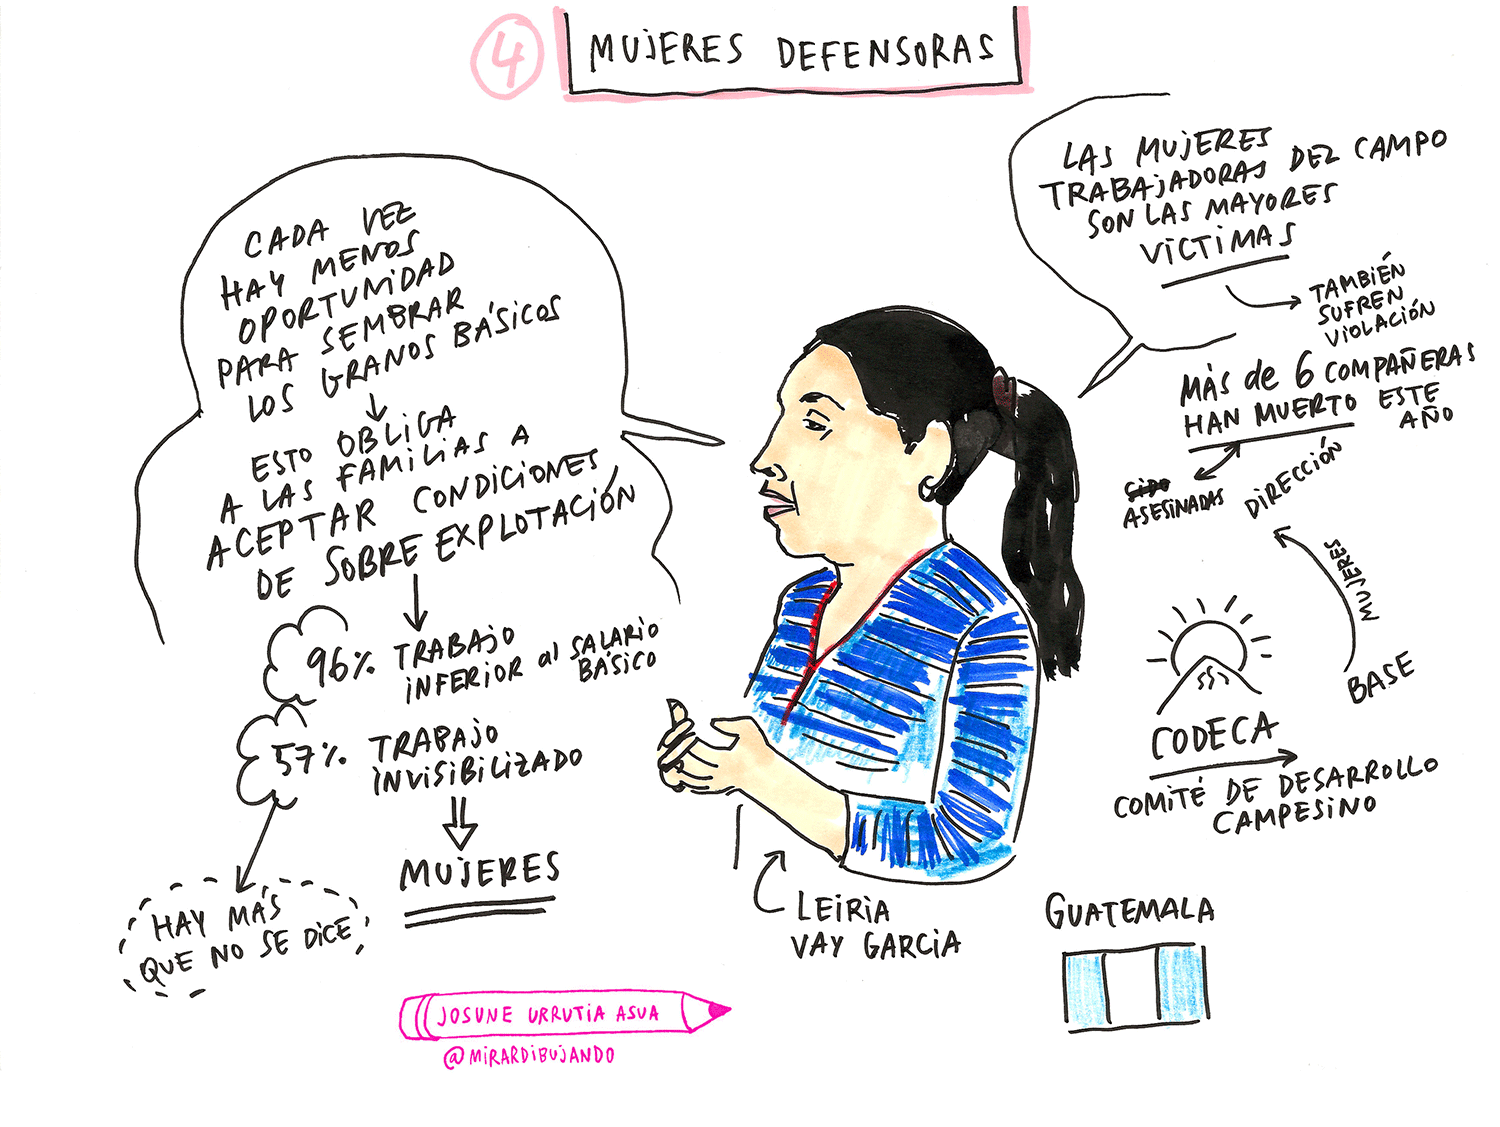 4
MUJERES DEFENSORAS
CADA VEZ
HAY MENOS
OPORTUNIDAD
PARA SEMBRAR
LOS GRANOS BÁSICOS
ESTO OBLIGA
A LAS FAMILIAS A
ACEPTAR CONDICIONES
DE SOBRE EXPLOTACIÓN
96% TRABAJO
INFERIOR al SALARIO
BÁSICO
57% TRABAJO
INVISIBILIZADO
MUJERES
HAY MÁS
QUE NO SE DICE
LAS MUJERES
TRABAJADORAS DEL CAMPO
SON LAS MAYORES
VÍCTIMAS
TAMBIÉN
SUFREN
VIOLACIÓN
MÁS de 6 COMPAÑERAS
HAN MUERTO ESTE
AÑO
SIDO
ASESINADAS
DIRECCIÓN
MUJERES
BASE
CODECA
COMITÉ DE DESARROLLO
CAMPESINO
LEIRIA
VAY GARCIA
GUATEMALA
JOSUNE URRUTIA ASUA
@MIRARDIBUJANDO